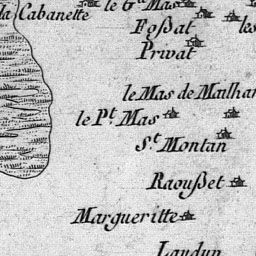 la Cabanette
le Gd. Mas
Foßat
Privat
les
le Mas de Mailhan
le Pt. Mas
St. Montan
Raoußet
Margueritte
Laudun